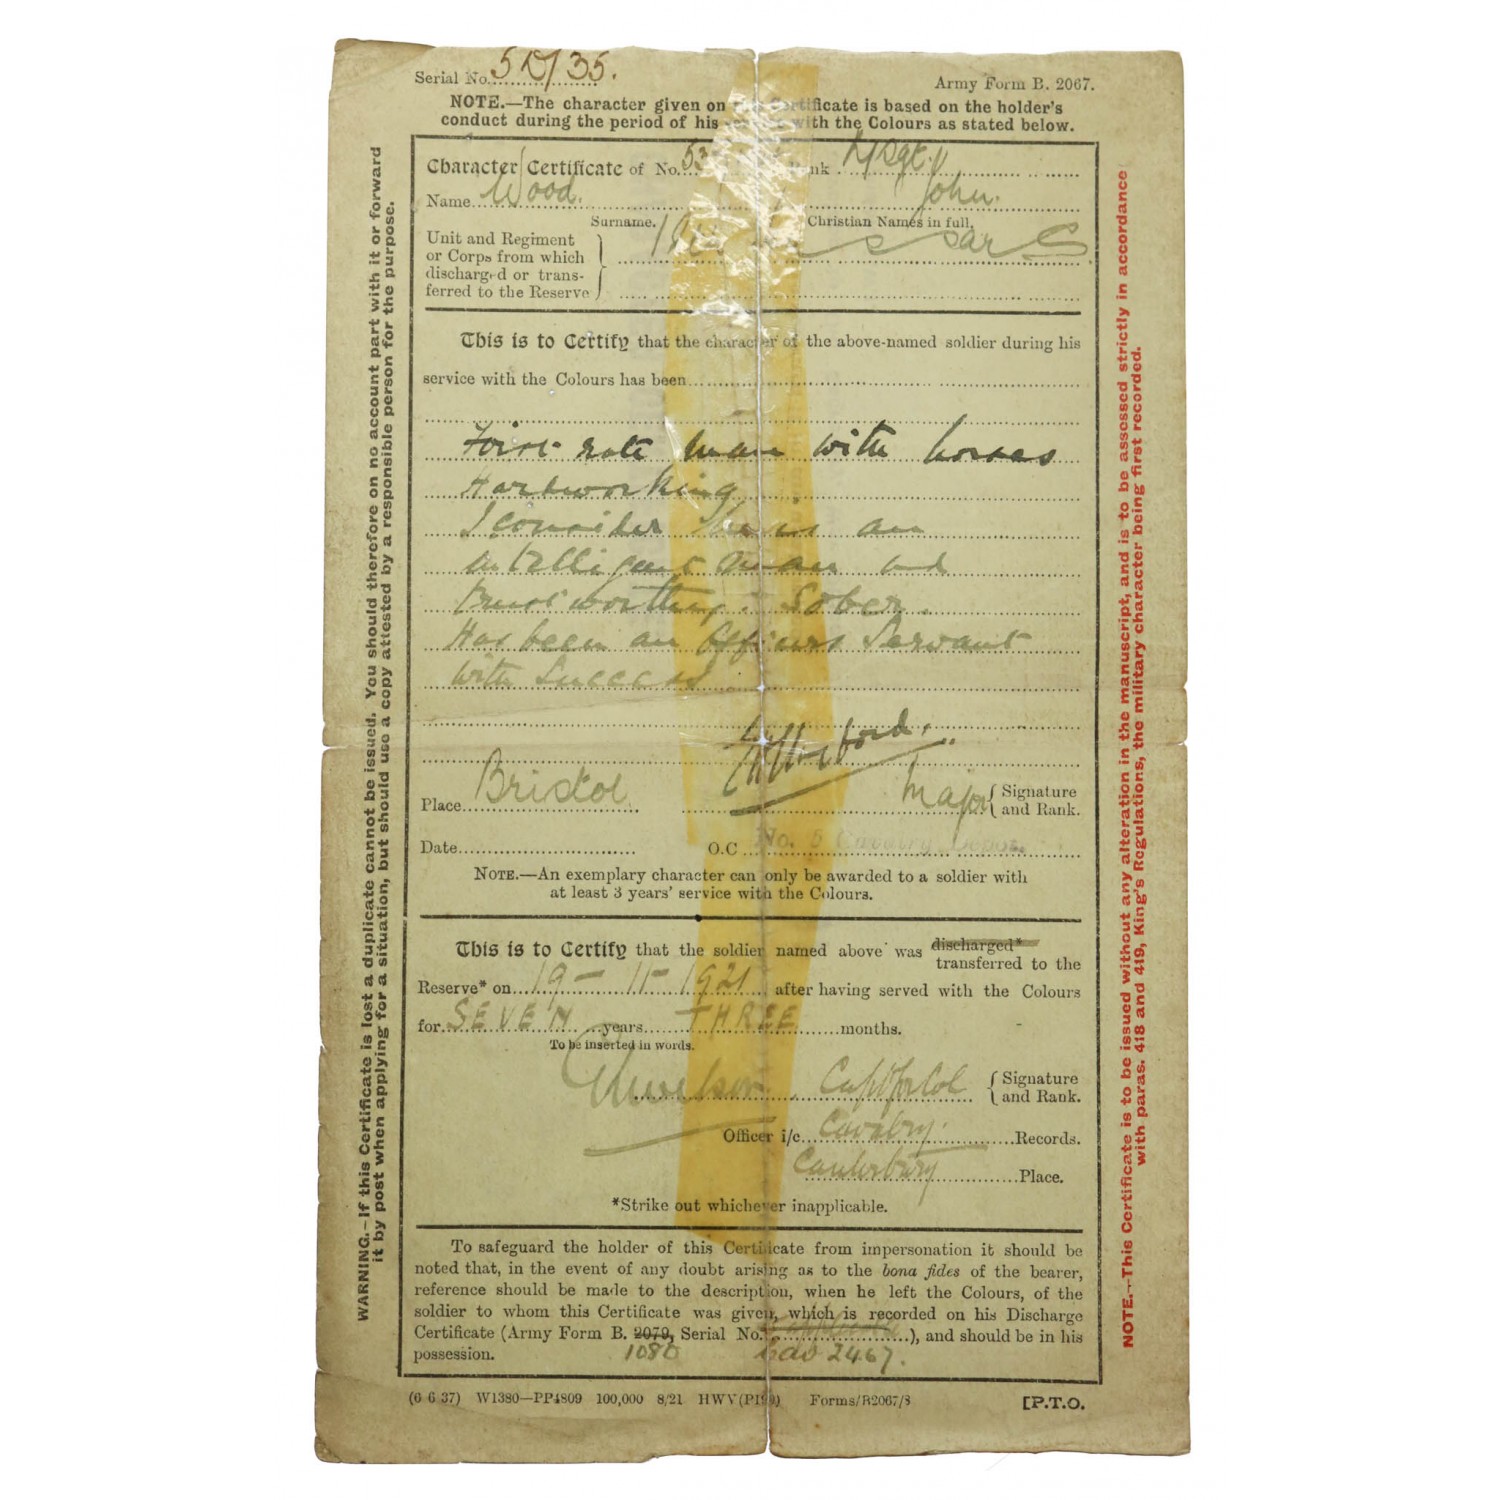 Serial No. 5D/35.
Army Form B. 2067.
NOTE.—The character given on Certificate is based on the holder's
conduct during the period of his with the Colours as stated below.
Character Certificate of No. 53 Rank L/Sgt.
Name Wood. John.
Surname. Christian Names in full,
Unit and Regiment
or Corps from which
discharged or trans-
ferred to the Reserve
This is to Certify that the character of the above-named soldier during his
service with the Colours has been
First rate man with horses
Hardworking
I consider he is an
intelligent man and
trustworthy. Sober.
Has been an Officers Servant
with success
Place Bristol Major Signature
and Rank.
Date O.C No. 5 Cavalry Depot.
NOTE.—An exemplary character can only be awarded to a soldier with
at least 3 years' service with the Colours.
This is to Certify that the soldier named above was discharged*
transferred to the
Reserve* on 19-11-1921 after having served with the Colours
for SEVEN years THREE months.
To be inserted in words.
Capt for Col Signature
and Rank.
Officer i/c Cavalry Records.
Canterbury Place.
*Strike out whichever inapplicable.
To safeguard the holder of this Certificate from impersonation it should be
noted that, in the event of any doubt arising as to the bona fides of the bearer,
reference should be made to the description, when he left the Colours, of the
soldier to whom this Certificate was given, which is recorded on his Discharge
Certificate (Army Form B. 2079, Serial No. ), and should be in his
possession. 1080 2467.
(6 6 37) W1380—PP4809 100,000 8/21 HWV(P190) Forms/B2067/8 [P.T.O.
WARNING.—If this Certificate is lost a duplicate cannot be issued. You should therefore on no account part with it or forward
it by post when applying for a situation, but should use a copy attested by a responsible person for the purpose.
NOTE.—This Certificate is to be issued without any alteration in the manuscript, and is to be assessed strictly in accordance
with paras. 418 and 419, King's Regulations, the military character being first recorded.